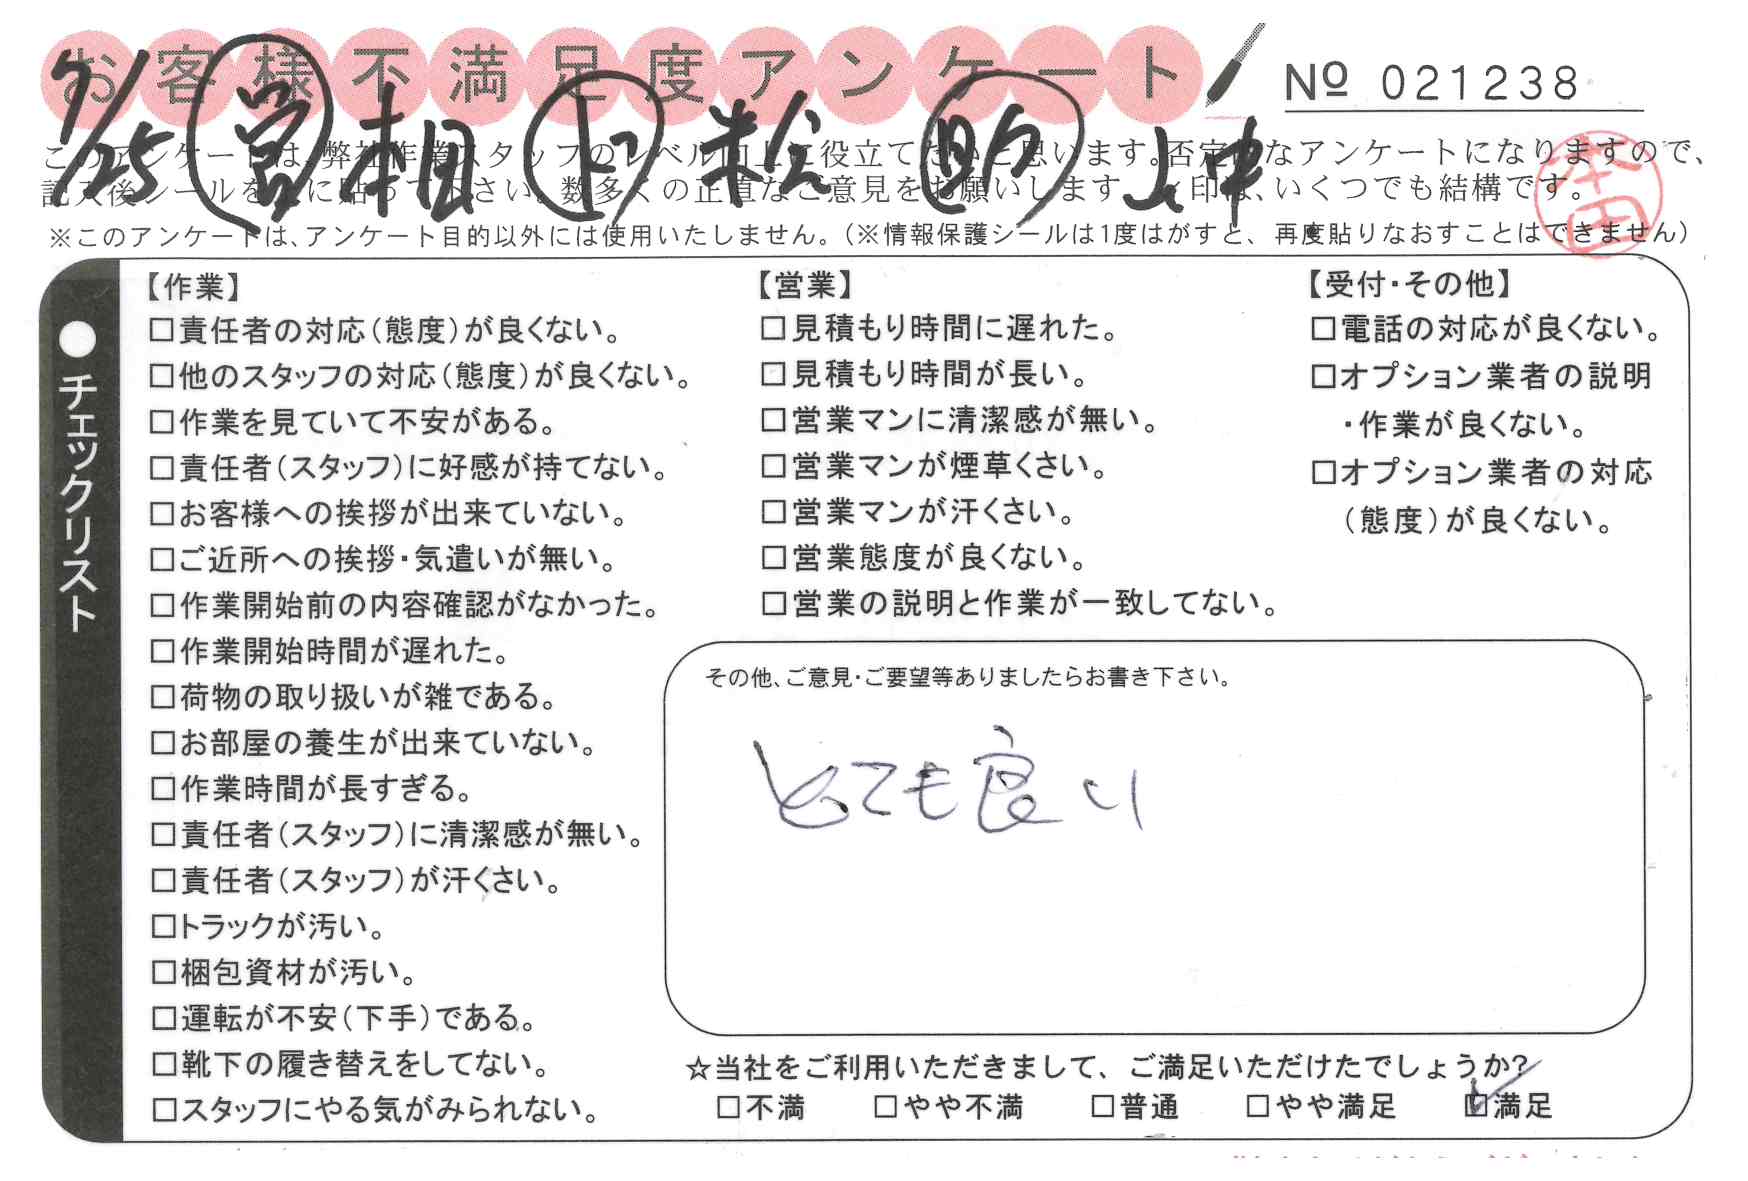 お客様不満足度アンケート
№ 021238
7/25 営 相 上 松 助 山中
このアンケートは、弊社作業スタッフのレベル向上に役立てたいと思います。否定的なアンケートになりますので、
記入後シールを上に貼って下さい。数多くの正直なご意見をお願いします。✓印は、いくつでも結構です。
※このアンケートは、アンケート目的以外には使用いたしません。（※情報保護シールは1度はがすと、再度貼りなおすことはできません）
チェックリスト
【作業】
□責任者の対応（態度）が良くない。
□他のスタッフの対応（態度）が良くない。
□作業を見ていて不安がある。
□責任者（スタッフ）に好感が持てない。
□お客様への挨拶が出来ていない。
□ご近所への挨拶・気遣いが無い。
□作業開始前の内容確認がなかった。
□作業開始時間が遅れた。
□荷物の取り扱いが雑である。
□お部屋の養生が出来ていない。
□作業時間が長すぎる。
□責任者（スタッフ）に清潔感が無い。
□責任者（スタッフ）が汗くさい。
□トラックが汚い。
□梱包資材が汚い。
□運転が不安（下手）である。
□靴下の履き替えをしてない。
□スタッフにやる気がみられない。
【営業】
□見積もり時間に遅れた。
□見積もり時間が長い。
□営業マンに清潔感が無い。
□営業マンが煙草くさい。
□営業マンが汗くさい。
□営業態度が良くない。
□営業の説明と作業が一致してない。
【受付・その他】
□電話の対応が良くない。
□オプション業者の説明
・作業が良くない。
□オプション業者の対応
（態度）が良くない。
その他、ご意見・ご要望等ありましたらお書き下さい。
とても良い
☆当社をご利用いただきまして、ご満足いただけたでしょうか？
□不満 □やや不満 □普通 □やや満足 ☑満足